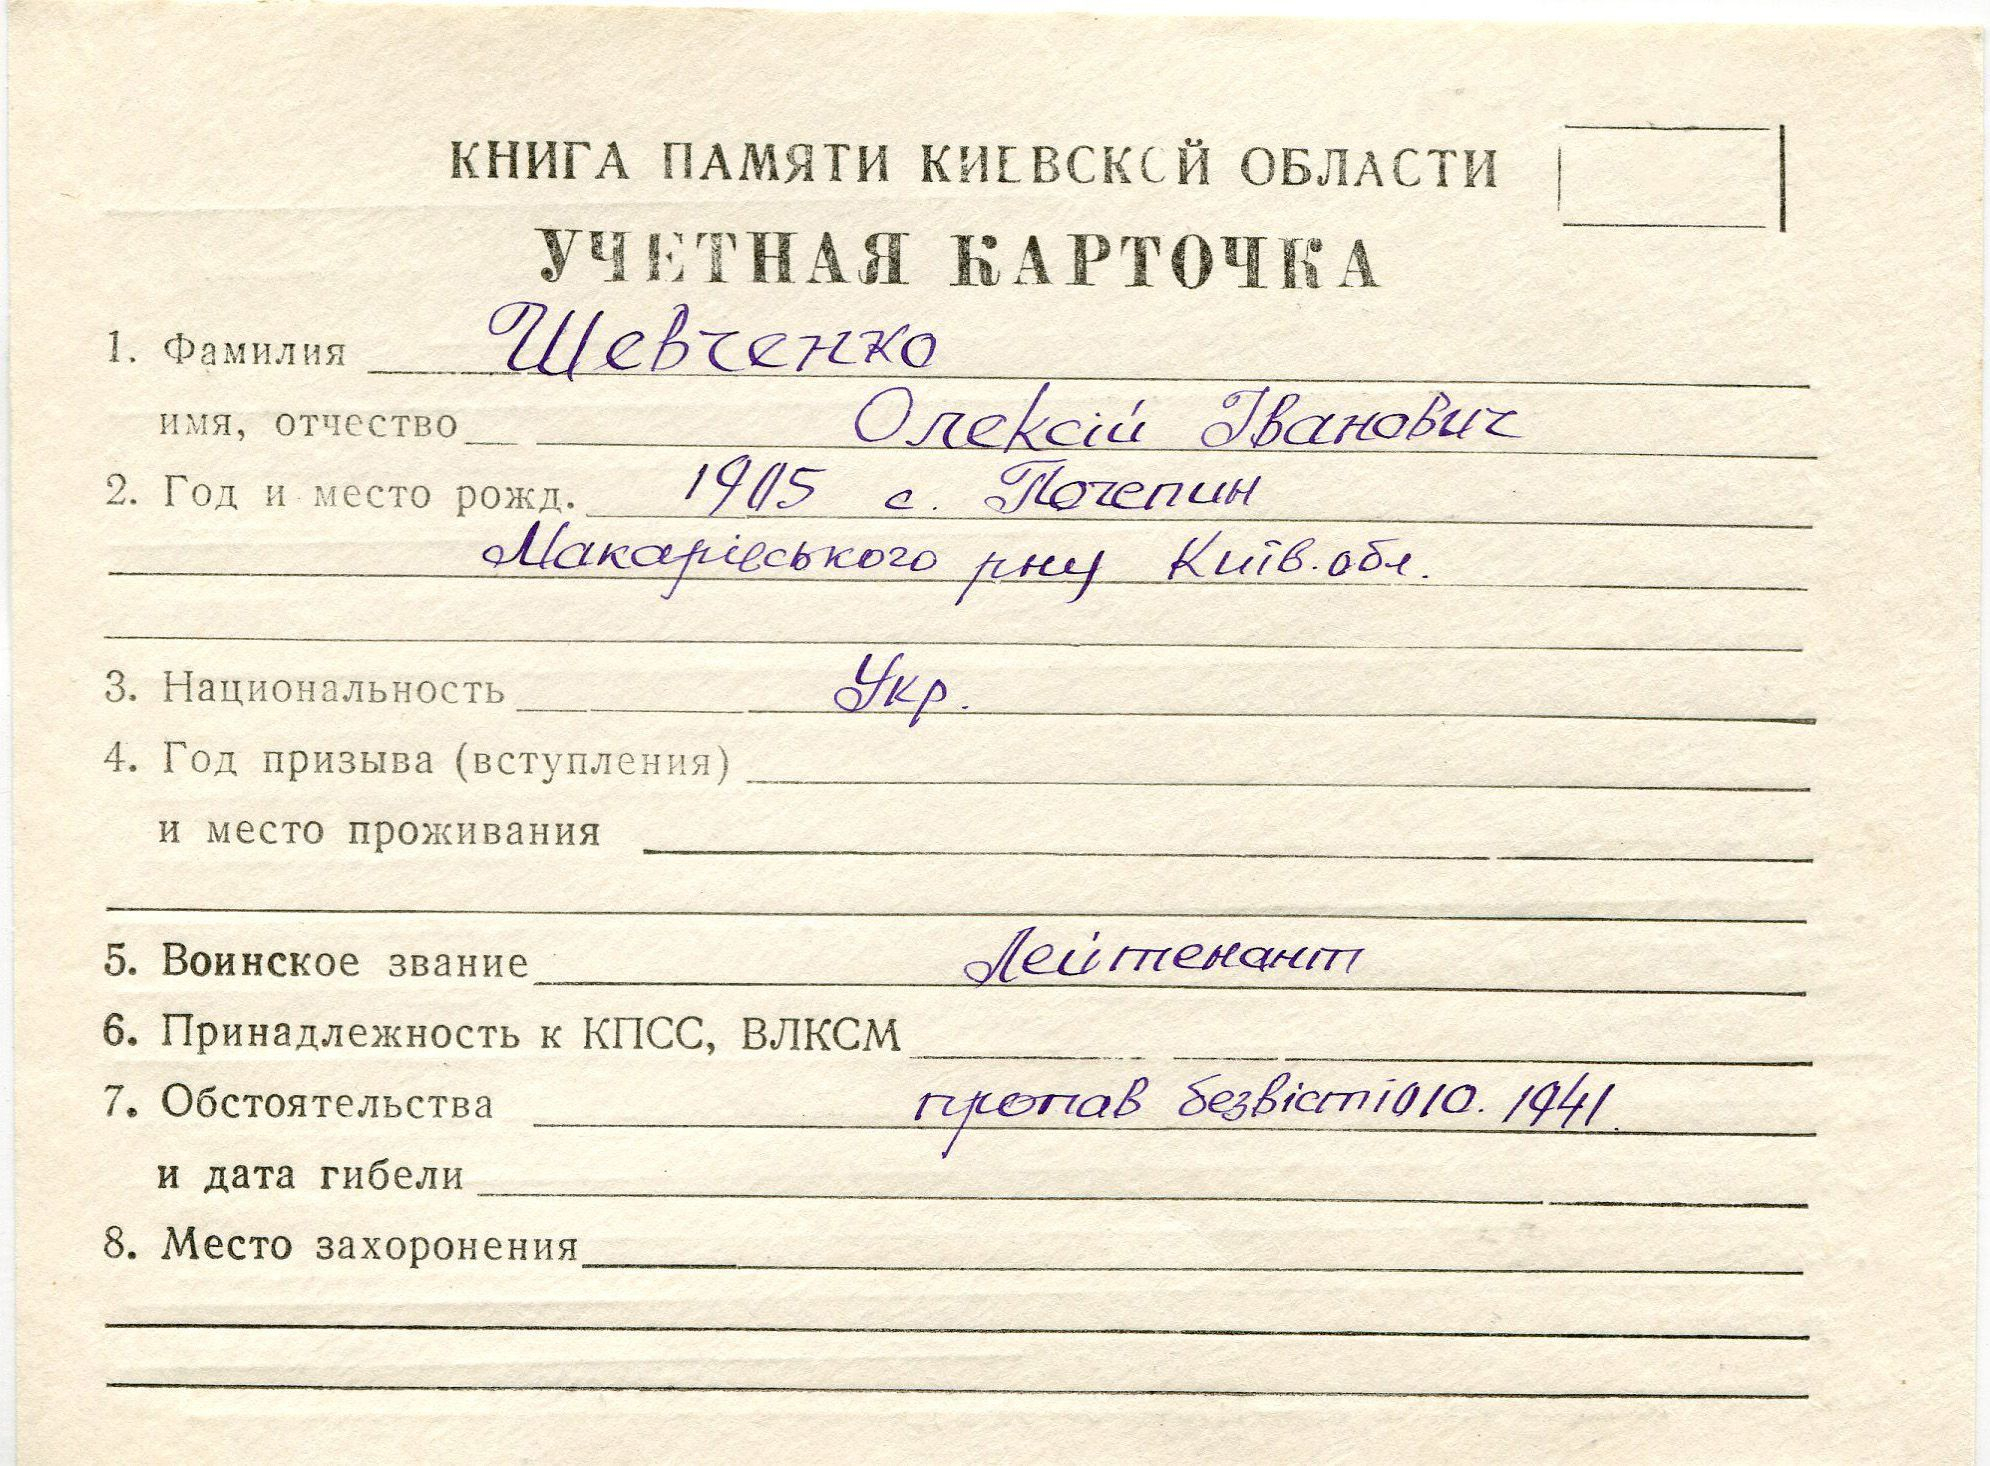 КНИГА ПАМЯТИ КИЕВСКОЙ ОБЛАСТИ
УЧЕТНАЯ КАРТОЧКА
1. Фамилия Шевченко
имя, отчество Олексій Іванович
2. Год и место рожд. 1905 с. Почепин
Макарівського рну Київ. обл.
3. Национальность Укр.
4. Год призыва (вступления)
и место проживания
5. Воинское звание Лейтенант
6. Принадлежность к КПСС, ВЛКСМ
7. Обстоятельства пропав безвісті 10. 1941.
и дата гибели
8. Место захоронения